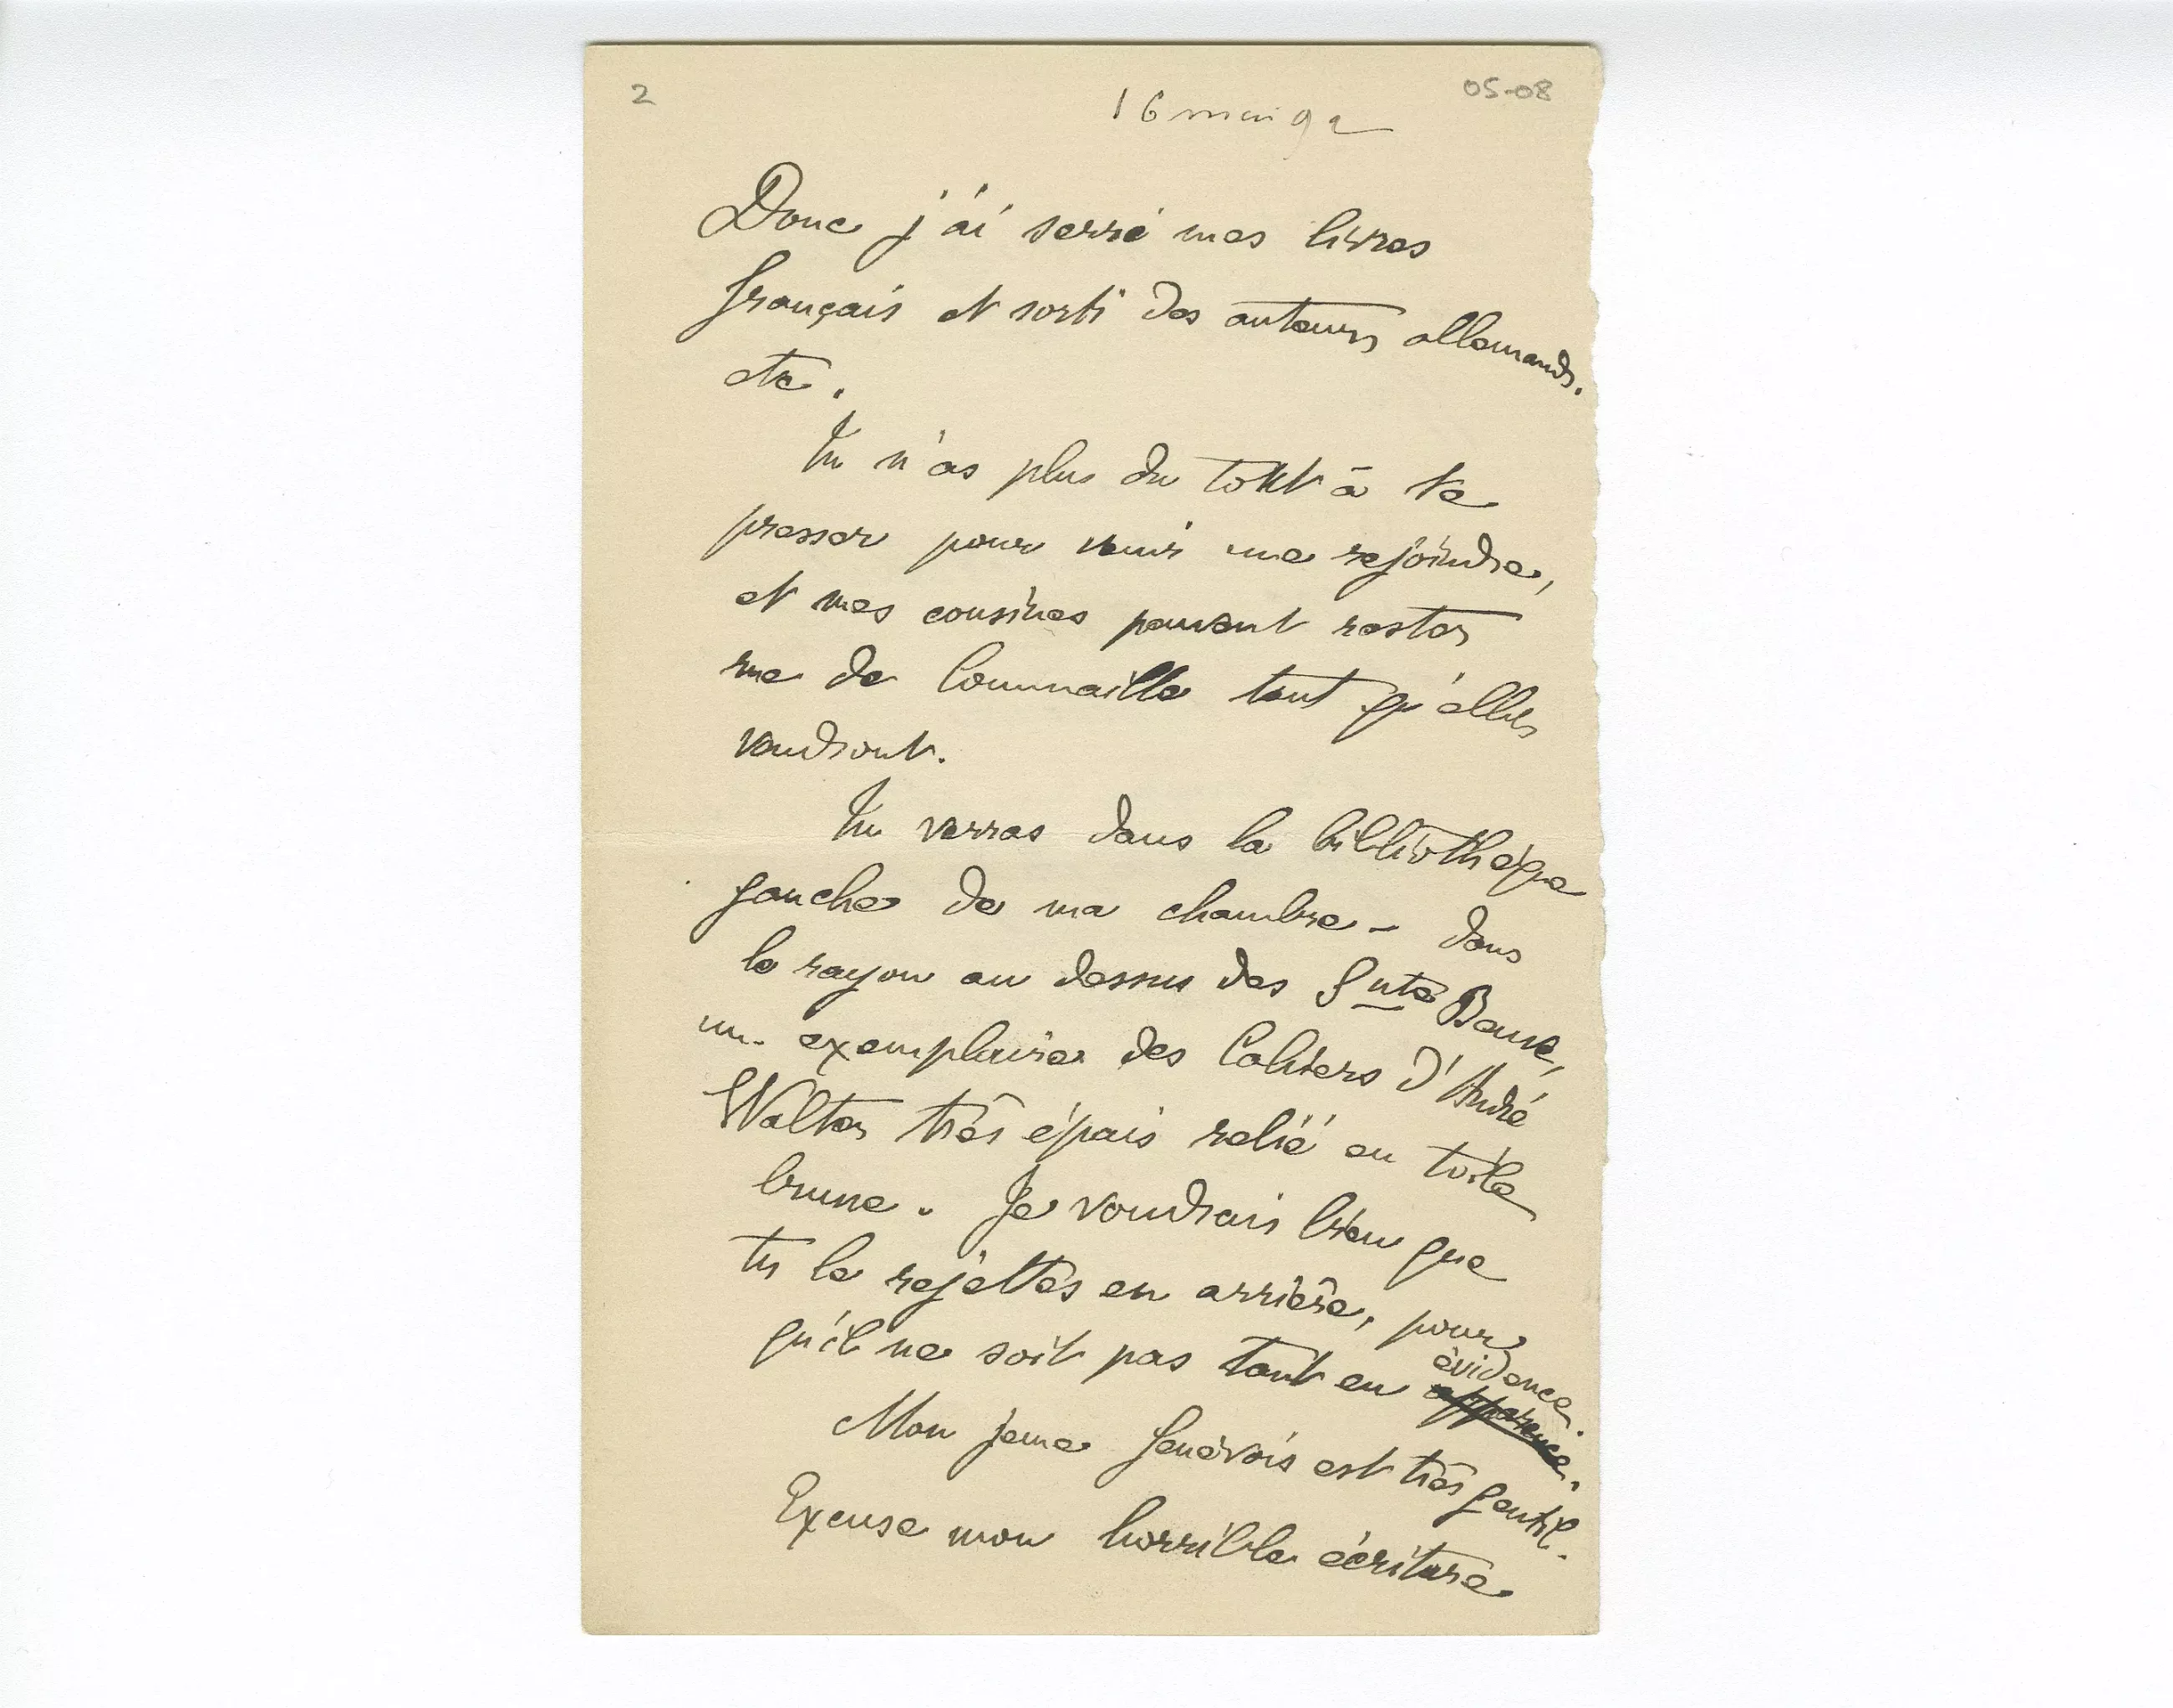 2
16 mai 92
05-08
Donc j'ai serré mes livres
français et sorti des auteurs allemands.
etc.
Tu n'as plus du tout à te
presser pour venir me rejoindre,
et mes cousines peuvent rester
rue de Commaille tant qu'elles
voudront.
Tu verras dans la bibliothèque
gauche de ma chambre – dans
le rayon au dessus des Snte Beuve,
un exemplaire des Cahiers d'André
Walter très épais relié en toile
brune. Je voudrais bien que
tu le rejettes en arrière, pour
qu'il ne soit pas tant en évidence.
apparence.
Mon jeune Genèvois est très gentil.
Excuse mon horrible écriture